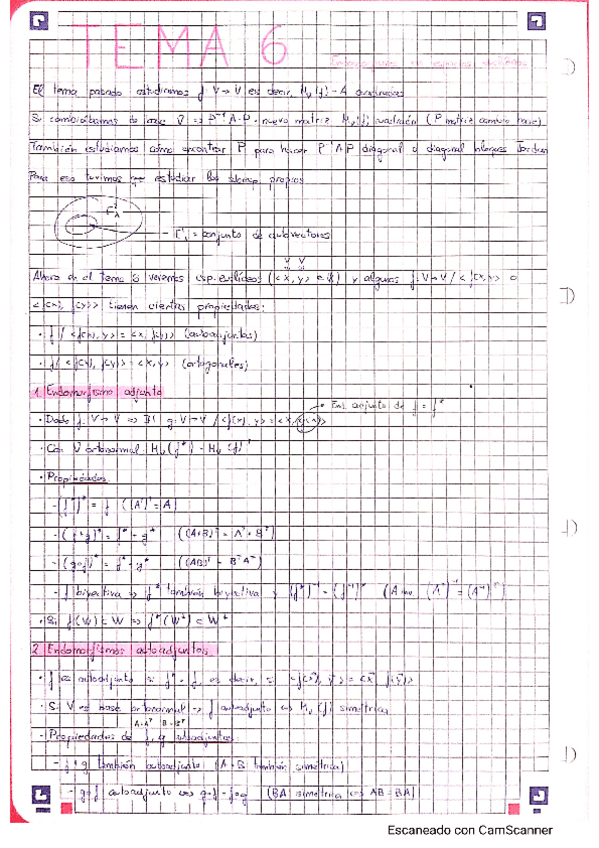 TEMA 6
El tema pasado estudiamos f: V→V es decir, M_V(f) = A cuadradas
Si cambiábamos de base V̄ ⇒ P⁻¹·A·P = nueva matriz M_V̄(f) cuadrada (P matriz cambio base)
También estudiamos cómo encontrar P para hacer P⁻¹AP diagonal o diagonal bloques Jordan
Para eso tuvimos que estudiar los subesp. propios
= conjunto de autovectores
Ahora en el Tema 6 veremos esp. euclídeos (<x, y> ∈ ℝ) y algunos f: V→V / <f(x), y> o
<f(x), f(y)> tienen ciertas propiedades:
· f / <f(x), y> = <x, f(y)> (autoadjuntos)
· f / <f(x), f(y)> = <x, y> (ortogonales)
1. Endomorfismo adjunto
Es adjunto de f = f*
· Dado f: V→V ⇒ ∃! g: V→V / <f(x), y> = <x, g(y)>
· Con V ortonormal: M_V(f*) = M_V(f)ᵀ
· Propiedades
- (f*)* = f ((Aᵀ)ᵀ = A)
- (f+g)* = f* + g* ((A+B)ᵀ = Aᵀ + Bᵀ)
- (g∘f)* = f* ∘ g* ((AB)ᵀ = BᵀAᵀ)
- f biyectiva ⇒ f* también biyectiva y (f*)⁻¹ = (f⁻¹)* (A inv. (Aᵀ)⁻¹ = (A⁻¹)ᵀ)
· Si f(W) ⊂ W ⇒ f*(W^⊥) ⊂ W^⊥
2. Endomorfismos autoadjuntos
· f es autoadjunto si f* = f, es decir, si <f(x), y> = <x, f(y)>
· Si V es base ortonormal ⇒ f autoadjunto ⇔ M_V(f) simétrica
A=Aᵀ B=Bᵀ
· Propiedades de f, g autoadjuntos
- f+g también autoadjunto (A+B también simétrica)
- g∘f autoadjunto ⇔ g∘f = f∘g (BA simétrica ⇔ AB = BA)
Escaneado con CamScanner